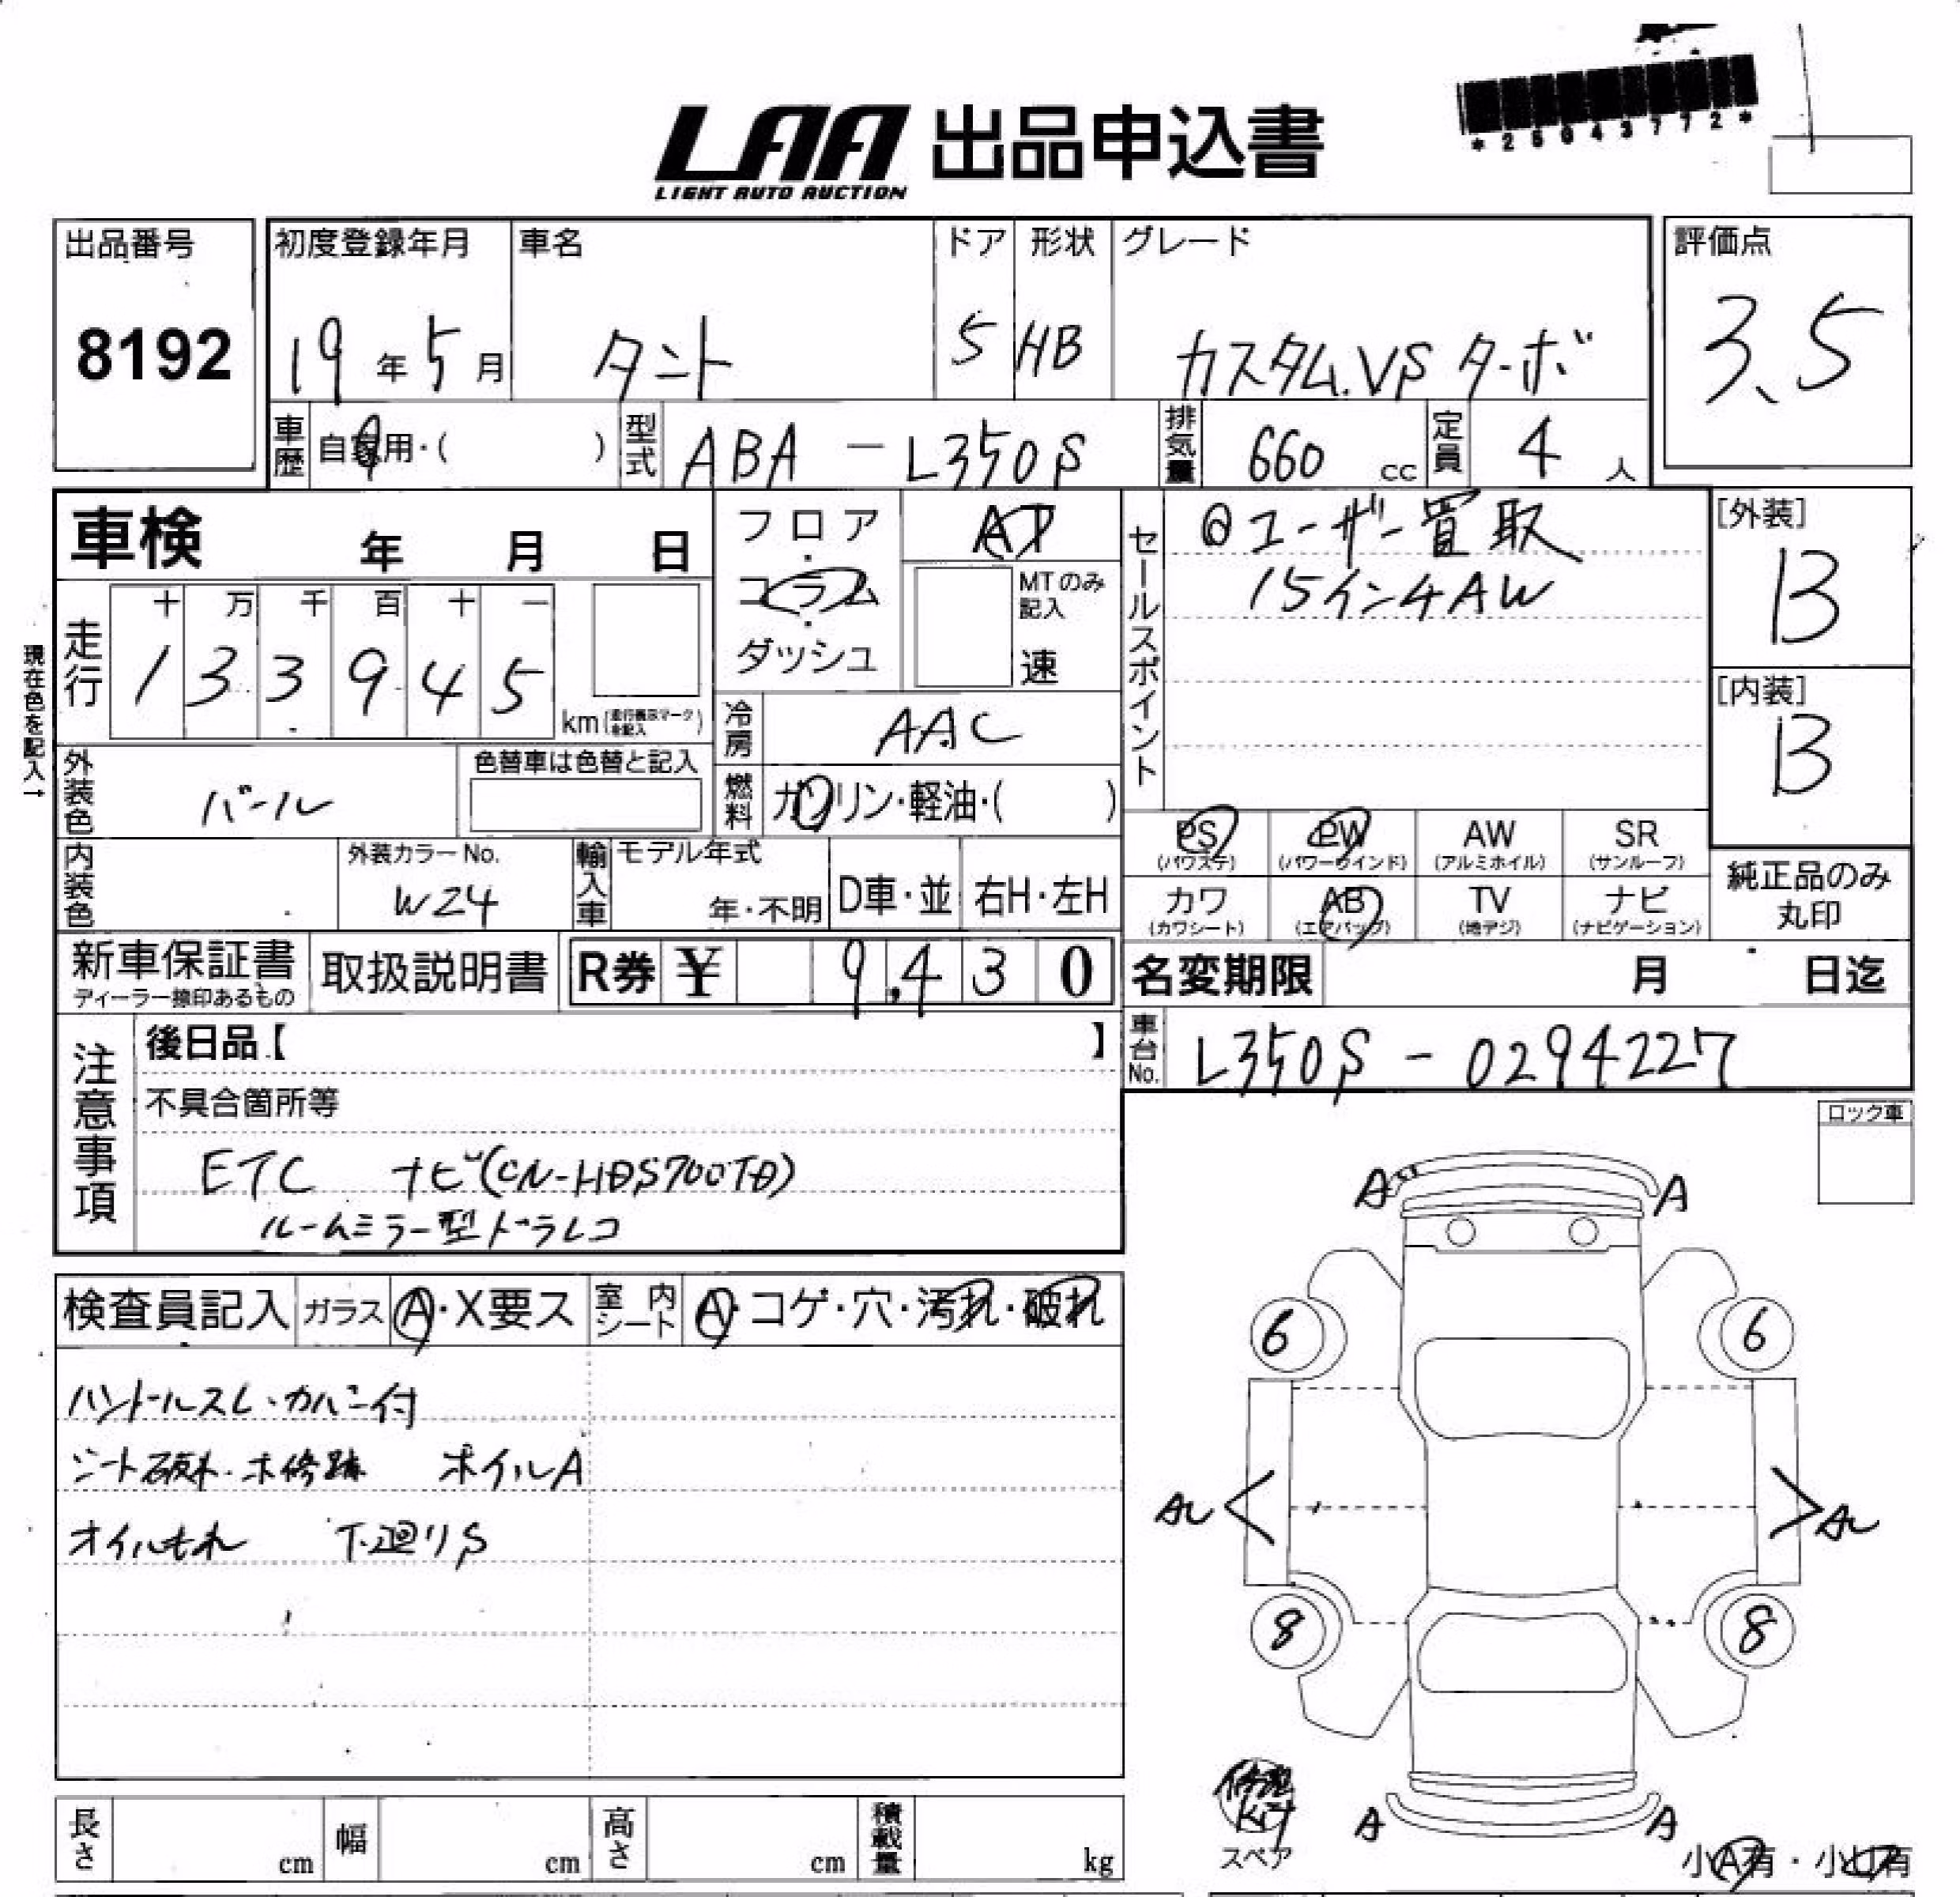 LAA 出品申込書
LIGHT AUTO AUCTION
*25043772*
出品番号
8192
初度登録年月
19年5月
車名
タント
ドア
5
形状
HB
グレード
カスタム.VS ターボ
評価点
3.5
車歴
自家用・( )
型式
ABA - L350S
排気量
660 cc
定員
4 人
車検 年 月 日
フロア・コラム・ダッシュ
AT
MTのみ記入
速
セールスポイント
◎ユーザー買取
15インチAW
[外装]
B
[内装]
B
現在色を記入↑
走行
十 万 千 百 十 一
1 3 3 9 4 5
km(走行表示マークを記入)
冷房
AAC
外装色
パール
色替車は色替と記入
燃料
ガソリン・軽油・( )
PS (パワステ)
PW (パワーウインド)
AW (アルミホイル)
SR (サンルーフ)
カワ (カワシート)
AB (エアバッグ)
TV (地デジ)
ナビ (ナビゲーション)
純正品のみ丸印
内装色
外装カラーNo.
W24
輸入車
モデル年式
年・不明
D車・並
右H・左H
新車保証書
ディーラー捺印あるもの
取扱説明書
R券 ¥ 9,430
名変期限 月 日迄
車台No.
L350S - 0294227
注意事項
後日品【 】
不具合箇所等
ETC ナビ(CN-HDS700TD)
ルームミラー型ドラレコ
ロック車
検査員記入
ガラス
A・X要ス
室内シート
A・コゲ・穴・汚れ・破れ
ハンドルスレ・カバー付
シート破れ・ホ修跡 ホイルA
オイルもれ 下廻りS
A A
6 6
AU AU
8 8
修理Kit
スペア
A A
小A有・小U有
長さ cm
幅 cm
高さ cm
積載量 kg